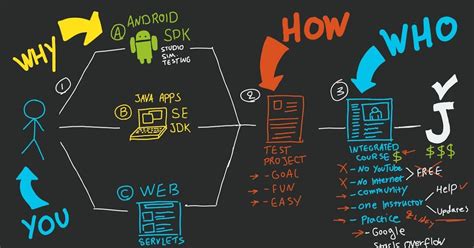 WHY
YOU
1
A ANDROID
SPK
STUDIO
SIM.
TESTING
B JAVA APPS
SE
JDK
C WEB
SERVLETS
HOW
2
TEST
PROJECT
- GOAL
- FUN
- EASY
WHO
3
INTEGRATED
COURSE $
X - NO YOUTUBE
X - NO INTERNET
FREE
→ COMMUNITY
→ ONE INSTRUCTOR
→ PRACTICE
Help
Updates
→ Google
Stack Overflow
J
$$$